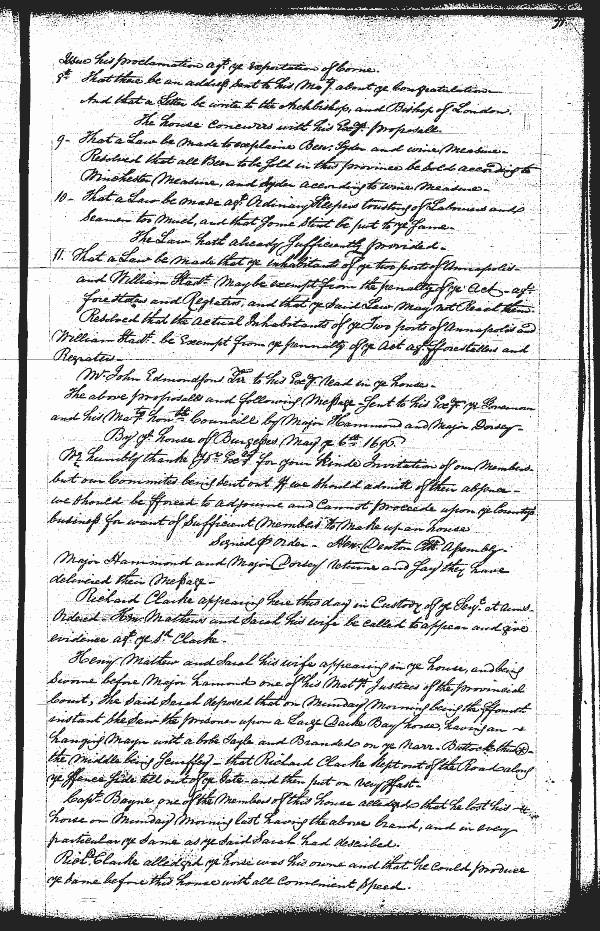 Issue his proclamation agt. ye exportation of Corne.
8th That there be an address sent to his Maty. about ye Congratulation
And that a Letter be wrote to the Archbishop, and Bishop of London.
The house concurrs with his Exy. proposall
9 - That a Law be made to explaine Beer, Syder and wine Measure
Resolved that all Beer to be sold in this province be sold according to
Winchester Measure, and Syder according to wine Measure
10 - That a Law be made agt. Ordinary Keepers trusting of Labourers and
Seamen too much, and that some stint be put to ye same
The Law hath already sufficiently provided
11. That a Law be made that ye inhabitants of ye two ports of Annapolis
and William Stadt. may be exempt from the penalty of ye Act agt.
forestallers and Regrators, and that ye said Law may not Reach them
Resolved that the Actual Inhabitants of ye Two ports of Annapolis and
William Stadt. be Exempt from ye pennalty of ye Act agt. fforestallers and
Regrators
Mr. John Edmondsons Lre to his Exy. read in ye house
The above proposalls and following Message sent to his Exy. ye Governour
and his Maty. honble Councill by Major Hammond and Major Dorsey
By ye house of Burgesses May ye 6th 1696
We humbly thanke yor. Exy. for your kinde Invitation of our Members
but our Committes being sent out If we should admitt of their absence
we should be fforced to adjourne and Cannot proceede upon ye Country
business for want of sufficient Members to make up an house
Signed p Order - Hen: Denton Clk Assembly
Major Hammond and Major Dorsey returne and say they have
delivered their Message
Richard Clarke appearing here this day in Custody of ye Serjt. at arms
Ordered Hen: Mathews and Sarah his wife be called to appear and give
evidence agt. ye sd. Clarke
Henry Mathew and Sarah his wife appearing in ye house, and being
sworne before Major hamond one of his Maty's Justices of the provinciall
Court, she said Sarah deposed that on Munday Morning being the ffourth
instant she saw the prisoner upon a Large Darke Bay horse, having an
hanging Mayn with a bobb Tayle and Branded on ye Narr. Buttock
the Middle being - that Richard Clarke slept out of the Road along
ye ffence side till out of ye Gate and then put on very ffast
Capt. Bayne one of the Members of this house alledged that he lost his
horse on Munday Morning last having the above brand, and in every
particular ye same as ye said Sarah had described.
Richd. Clarke alledged ye horse was his owne and that he could produce
ye same before this house with all Convenient Speed.